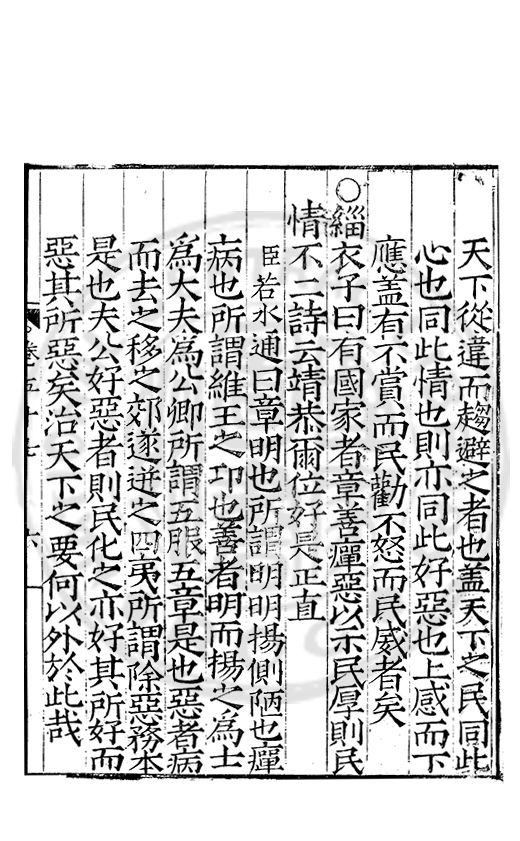 天下從違而趨避之者也蓋天下之民同此
心也同此情也則亦同此好惡也上感而下
應蓋有不賞而民勸不怒而民威者矣
○緇衣子曰有國家者章善癉惡以示民厚則民
情不二詩云靖恭爾位好是正直
臣若水通曰章明也所謂明明揚側陋也癉
病也所謂維王之卭也善者明而揚之為士
為大夫為公卿所謂五服五章是也惡者病
而去之移之郊遂迸之四夷所謂除惡務本
是也夫公好惡者則民化之亦好其所好而
惡其所惡矣治天下之要何以外於此哉
卷五十七
六